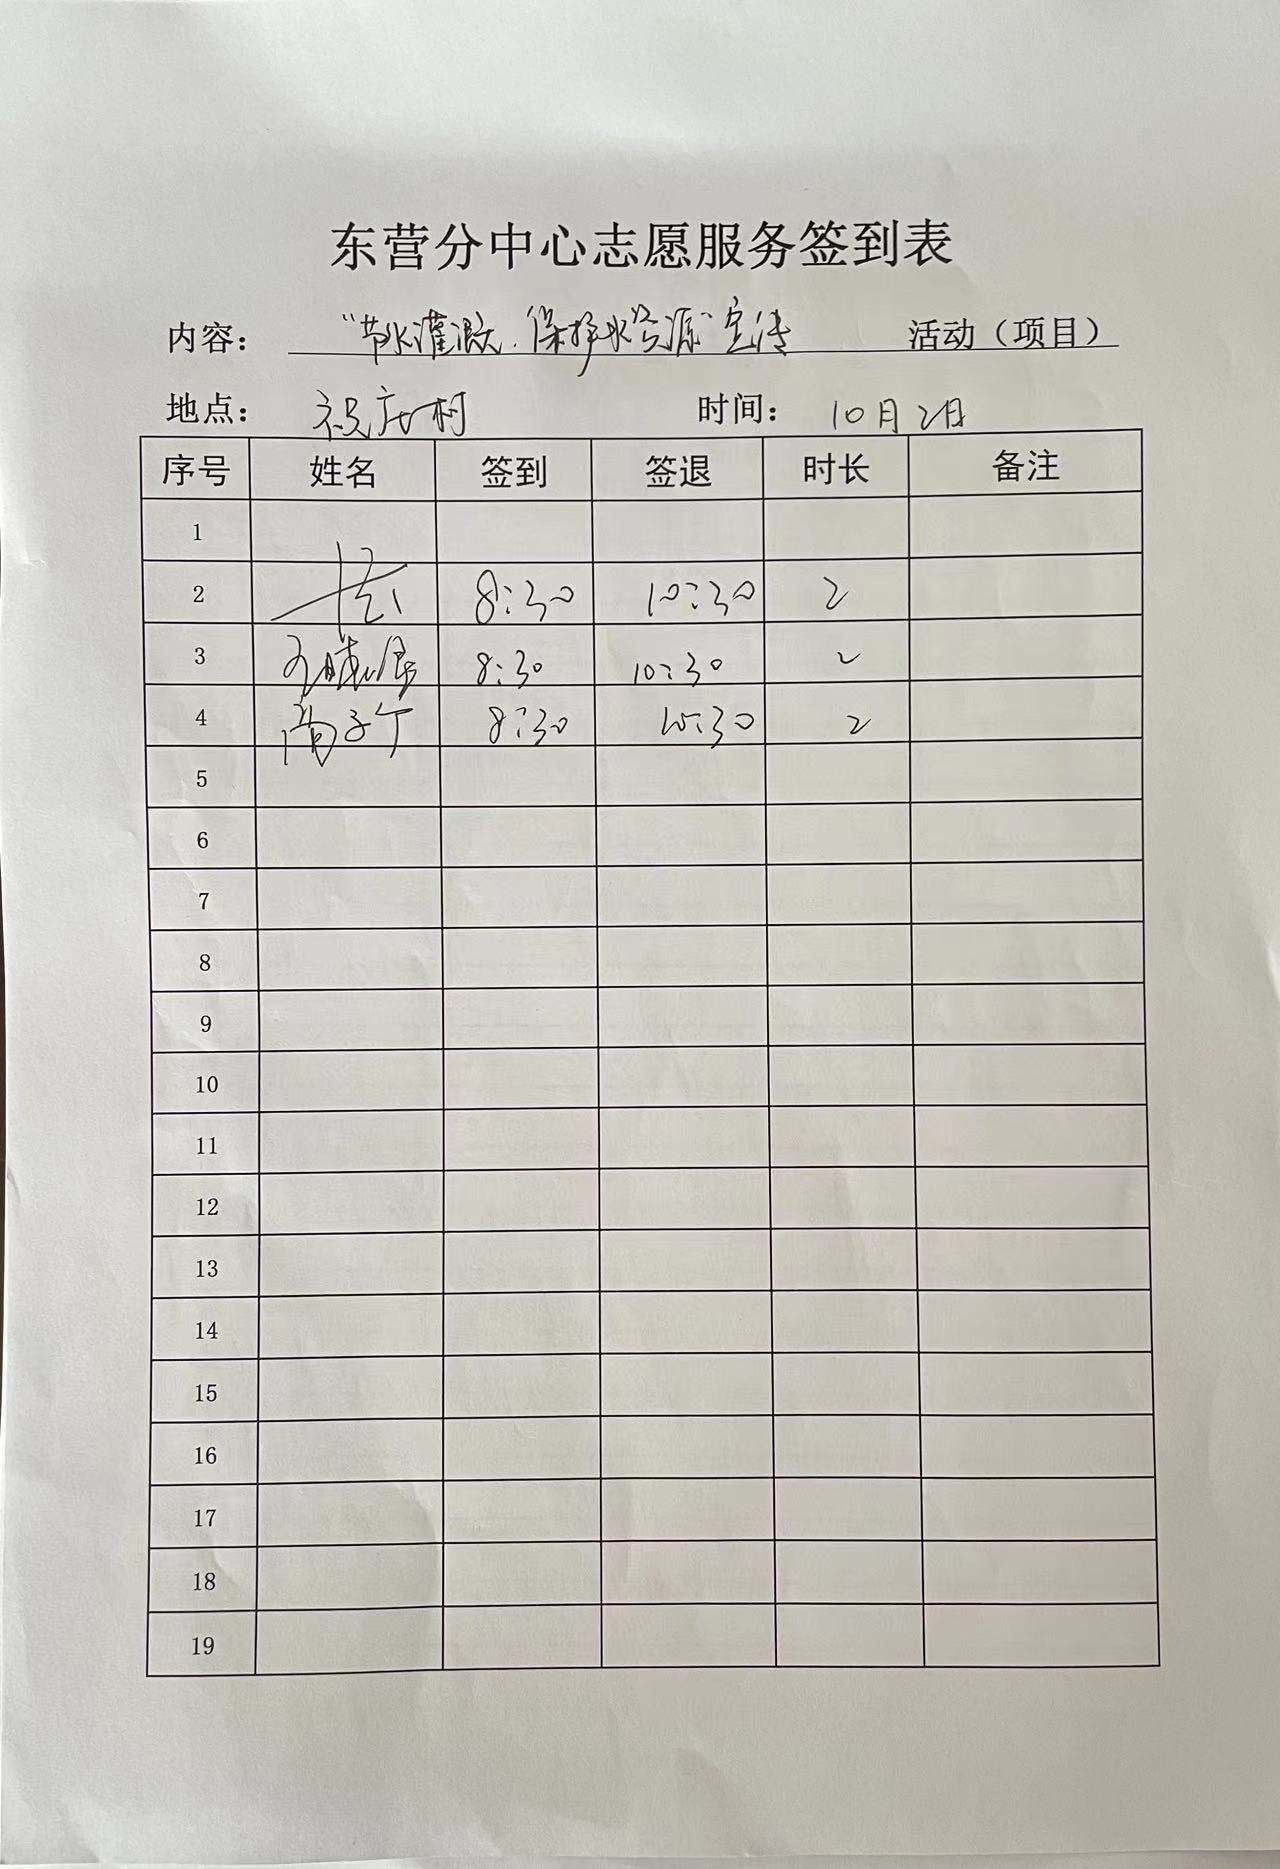 东营分中心志愿服务签到表
内容： “节水灌溉.保护水资源”宣传 活动（项目）
地点： 祝店村 时间： 10月2日
序号 姓名 签到 签退 时长 备注
1
2 8:30 10:30 2
3 8:30 10:30 2
4 尚子千 8:30 10:30 2
5
6
7
8
9
10
11
12
13
14
15
16
17
18
19